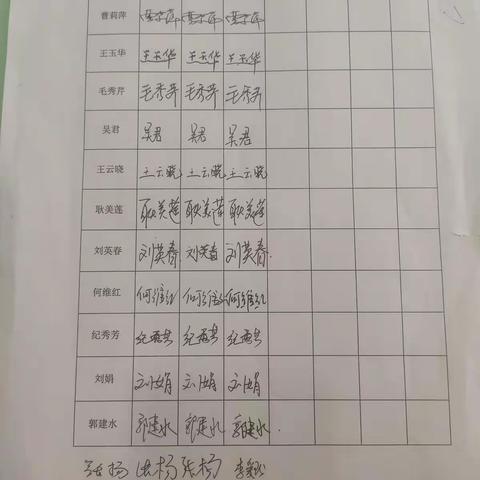 曹莉萍 曹莉萍 曹莉萍 曹莉萍
王玉华 王玉华 王玉华 王玉华
毛秀芹 毛秀芹 毛秀芹 毛秀芹
吴君 吴君 吴君 吴君
王云晓 王云晓 王云晓 王云晓
耿美莲 耿美莲 耿美莲 耿美莲
刘英春 刘英春 刘英春 刘英春
何维红 何维红 何维红 何维红
纪秀芳 纪秀芳 纪秀芳 纪秀芳
刘娟 刘娟 刘娟 刘娟
郭建水 郭建水 郭建水 郭建水
张杨 张杨